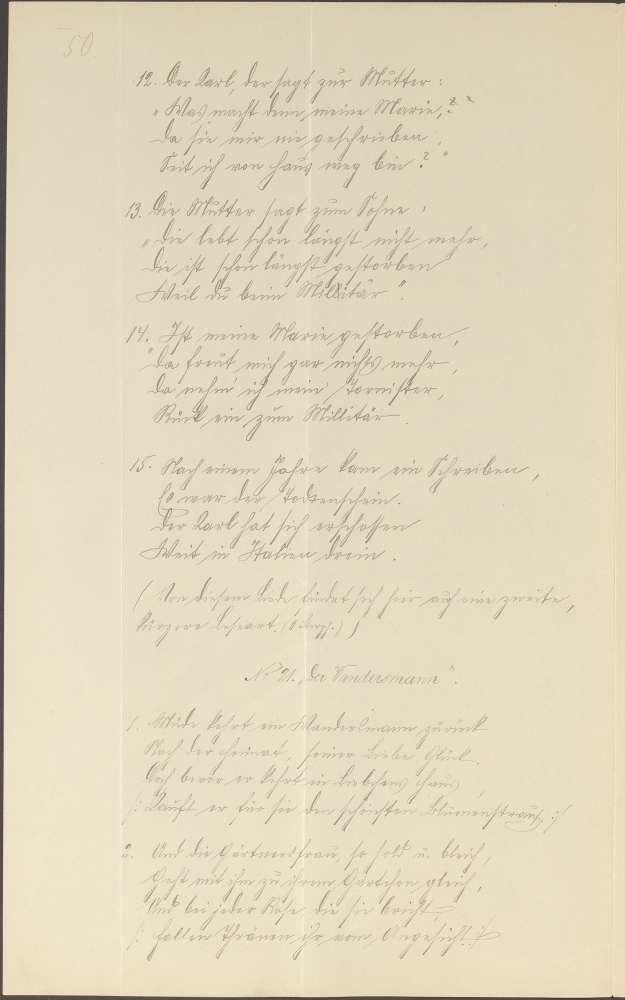 50.
12. Der Karl, der sagt zur Mutter:
"Was macht denn meine Marie,?"
Da sie mir nie geschrieben,
Seit ich von Haus weg bin?"
13. Die Mutter sagt zum Sohne:
"Die lebt schon längst nicht mehr,
Die ist schon längst gestorben
Weil du beim Millitär".
14. Ist meine Marie gestorben,
"Da freut mich gar nichts mehr,
Da nehm' ich mein Tornister,
Rück ein zum Millitär.
15. Nach einem Jahre kam ein Schreiben,
Es war der Todtenschein.
Der Karl hat sich erschossen
Weit in Italien drein.
(Von diesem Liede findet sich hier auch eine zweite,
kürzere Leseart.
No 21. "Der Wandersmann".
1. Müde kehrt ein Wandersmann zurück
Nach der Heimat, seiner Liebe Glück.
Doch bevor er kehrt in Liebchens Haus,
/: Kauft er für sie den schönsten Blumenstrauß. :/
2. Und die Gärtnersfrau, so hold u. bleich,
Geht mit ihm zu ihrem Gärtchen gleich,
Und bei jeder Rose, die sie bricht
/: Fallen Thränen ihr vom Angesicht :/